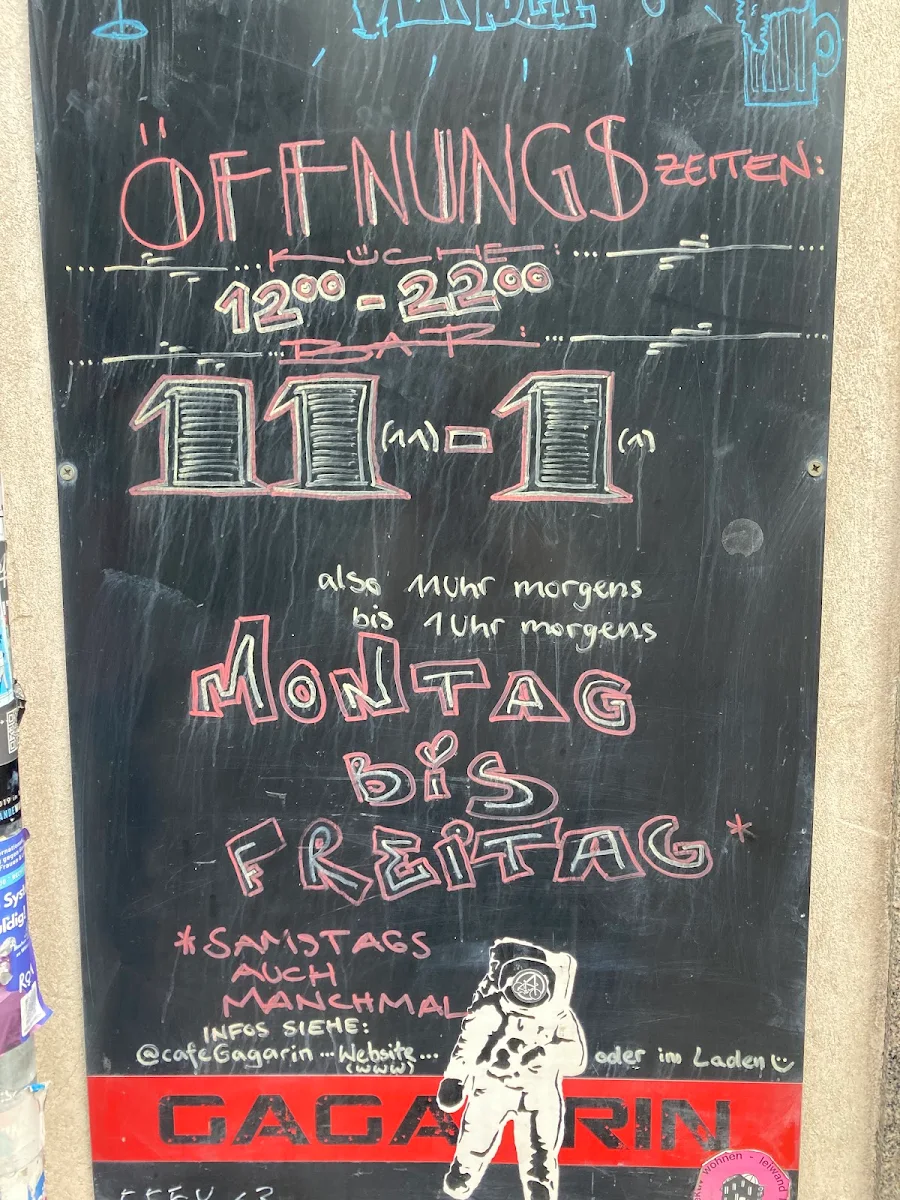 ÖFFNUNGSZEITEN:
KÜCHE:
12⁰⁰ - 22⁰⁰
BAR:
11(11) - 1(1)
also 11Uhr morgens
bis 1Uhr morgens
MONTAG
BiS
FREiTAG*
*SAMSTAGS
AUCH
MANCHMAL
INFOS SIEHE:
@cafeGagarin ... Website ... oder im Laden
(WWW)
GAGARIN
wohnen - leiwand